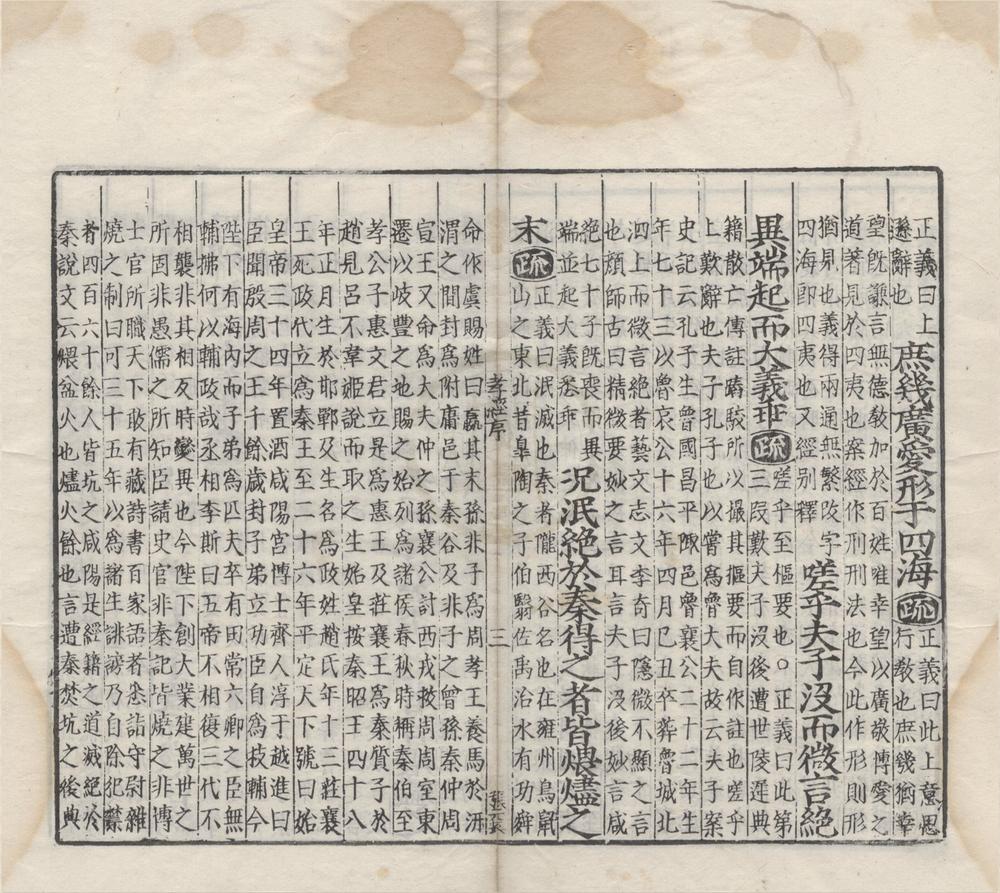 正義曰上
遜辭也
庶幾廣愛形于四海疏
正義曰此上意思
行敎也庶幾猶幸
望旣謙言無德敎加於百姓唯幸望以廣敬博愛之
道著見於四夷也案經作刑刑法也今此作形則形
猶見也義得兩通無繁改字
四海即四夷也又經别釋
嗟乎夫子沒而微言絕
異端起而大義乖疏
嗟乎至樞要也○正義曰此第
三叚歎夫子沒後遭世陵遲典
籍散亡傳註踳駮所以撮其樞要而自作註也嗟乎
上歎辭也夫子孔子也以嘗爲魯大夫故云夫子案
史記云孔子生魯國昌平陬邑魯襄公二十二年生
年七十三以魯哀公十六年四月巳丑卒葬魯城北
泗上而微言絕者藝文志文李奇曰隱微不顯之言
也顔師古曰精微要妙之言耳言夫子沒後妙言咸
絕七十子旣喪而異
端並起大義悉乖
況泯絕於秦得之者皆煨燼之
末疏
正義曰泯滅也秦者隴西谷名也在雍州鳥鼠
山之東北昔皐陶之子伯翳佐禹治水有功舜
孝經序
三
張襄
命作虞賜姓曰嬴其末孫非子爲周孝王養馬於汧
渭之間封爲附庸邑于秦谷及非子之曾孫秦仲周
宣王又命爲大夫仲之孫襄公討西戎救周周室東
遷以岐豐之地賜之始列爲諸侯春秋時稱秦伯至
孝公子惠文君立是爲惠王及莊襄王爲秦質子於
趙見呂不韋姬說而取之生始皇按秦昭王四十八
年正月生於邯鄲及生名爲政姓趙氏年十三莊襄
王死政代立爲秦王至二十六年平定天下號曰始
皇帝三十四年置酒咸陽宮博士齊人淳于越進曰
臣聞殷周之王千餘歲封子弟立功臣自爲枝輔今
陛下有海內而子弟爲匹夫卒有田常六卿之臣無
輔拂何以輔政哉丞相李斯曰五帝不相復三代不
相襲非其相反時變異也今陛下創大業建萬世之
所固非愚儒之所知臣請史官非秦記皆燒之非博
士官所職天下敢有藏詩書百家語者悉詣守尉雜
燒之制曰可三十五年以爲諸生誹謗乃自除犯禁
者四百六十餘人皆坑之咸陽是經籍之道滅絕於
秦說文云煨盆火也燼火餘也言遭秦焚坑之後典